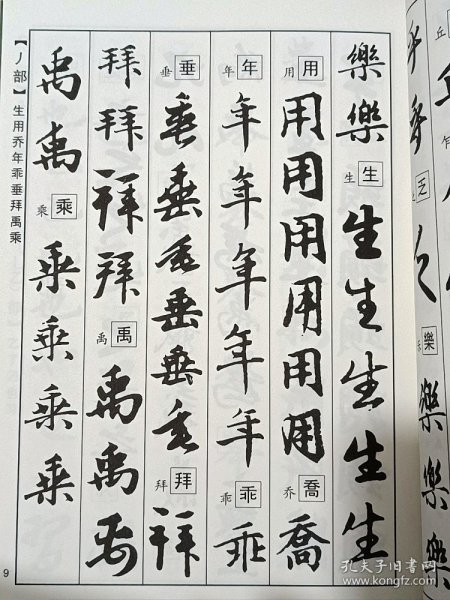 丘
丘
乏
樂
樂
樂
樂
樂樂
生生
生生生生生
用用
用用用用用用
乔喬
喬
年年
年年年年年
乖乖
乖
垂垂
垂垂垂垂垂垂
拜拜
拜
拜拜拜拜
禹禹
禹禹禹
禹禹
乘乘
乘乘乘乘
【丿部】生用乔年乖垂拜禹乘
9
孔夫子旧书网
www.kongfz.com